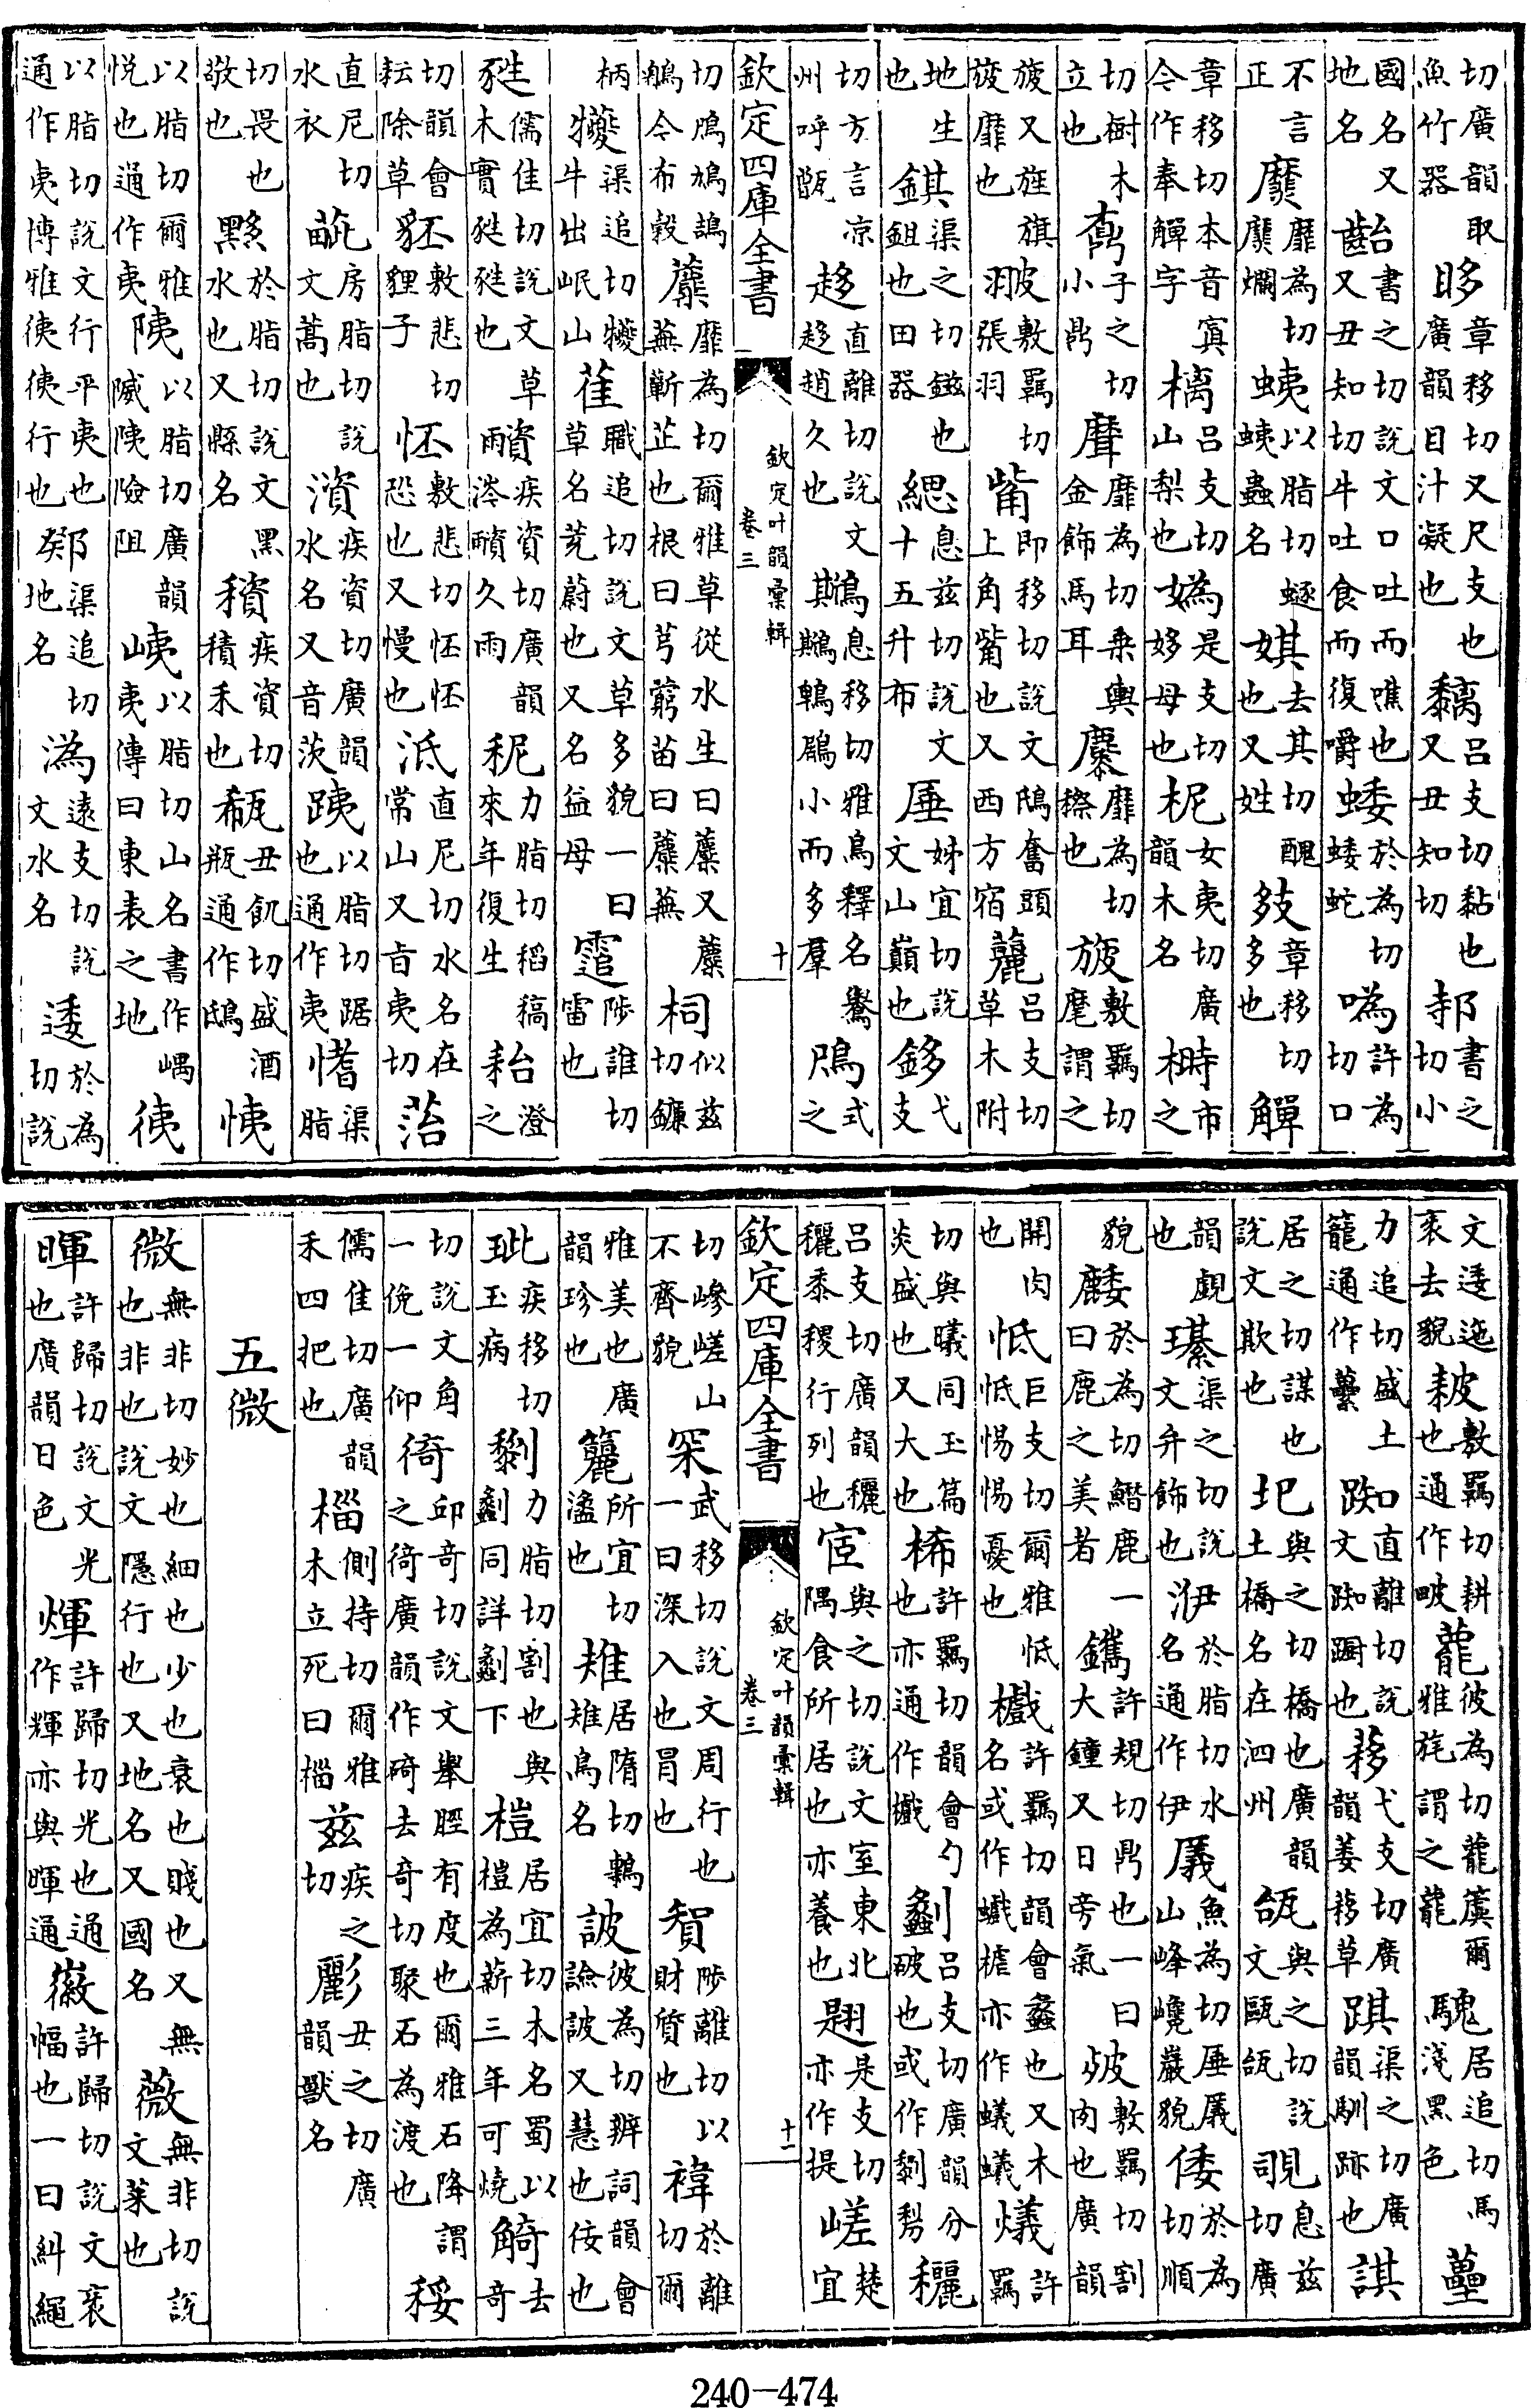 切廣韻取魚竹器眵章移切又尺支也廣韻目汁凝也黐呂支切黏也又丑知切邿書之切小
國名又地名齝書之切說文口吐而噍也又丑知切牛吐食而復嚼蜲於為切蜲蛇㗨許為切口
不言正爢靡為切爢爛蛦以脂切蛦蟲名娸去其切醜也又姓章移切多也觶
章移切本音寘今作奉觶字樆呂支切山梨也是支切姼母也柅女夷切廣韻木名榯市之
切樹木立也鼒子之切小鼎靡為切乘輿金飾馬耳靡為切穄也旇敷羈切麾謂之
旇又旌旗旇靡也翍敷羈切張羽觜即移切說文鴟奮頭上角觜也又西方宿呂支切草木附
地生也錤渠之切鎡也鉏也田器緦息茲切說文十五升布厜姊宜切說文山巔也鉹弋支
切方言凉州呼甑趍直離切說文趍趙久也息移切雅烏釋名鸒鶋小而多羣鳲式之
欽定四庫全書 欽定叶韻彙輯 卷三 十
切鳲鳩鴶鵴今布穀蘪靡為切爾雅草從水生曰蘪又蘪蕪蘄芷也根曰芎藭苗曰蘪蕪柌似茲切鐮
柄犪渠追切犪牛出岷山萑職追切說文草多貌一曰草名茺蔚也又名益母陟誰切雷也
甤儒佳切說文草木實甤甤也疾資切廣韻涔久雨秜力脂切稻稿來年復生耛澄之
切韻會耘除草豾敷悲切貍子怌敷悲切怌怌恐也又慢也泜直尼切水名在常山又旨夷切菭
直尼切水衣房脂切說文蒿也澬疾資切廣韻水名又音茨跠以脂切踞也通作夷愭渠脂
切畏也敬也黟於脂切說文黑水也又縣名疾資切積禾也瓻丑飢切盛酒瓶通作鴟恞
以脂切爾雅悅也通作夷以脂切廣韻隇險阻峓以脂切山名書作嵎夷傳曰東表之地
以脂切說文行平夷也通作夷博雅行也渠追切地名溈遠支切說文水名逶於為切說
文逶迤衺去貌耚敷羈切耕也通作畯彼為切爾雅謂之蘢騩居追切馬淺黑色虆
力追切盛土籠通作虆踟直離切說文踟躕也䔟弋支切廣韻萎䔟草踑渠之切廣韻馴跡也諆
居之切謀也說文欺也圯與之切橋也廣韻土橋名在泗州瓵與之切說文甌瓵覗息茲切廣
韻覷也璂渠之切說文弁飾也㳝於脂切水名通作伊㕒魚為切厜㕒山峰巉巖貌倭於為切順
貌於為切鱃鹿一曰鹿之美者鑴許規切鼎也一曰大鐘又日旁氣敷羈切割肉也廣韻
開肉也忯巨支切爾雅忯忯惕惕憂也許羈切韻會蠡也又木名或作亦作蟻許羈
切與曦同玉篇炎盛也又大也桸許羈切韻會勺也亦通作㰕劙呂支切廣韻分破也或作剺穲
呂支切廣韻穲穲黍稷行列也宧與之切說文室東北隅食所居也亦養也翄是支切亦作提嵯楚宜
欽定四庫全書 欽定叶韻彙輯 卷三 十一
切嵾嵯山不齊貌罙武移切說文周行也一曰深入也冒也䝷陟離切以財質也褘於離切爾
雅美也廣韻珍也簏所宜切盪也居隋切鷄鳥名詖彼為切辨詞韻會諭詖又慧也佞也
玼疾移切玉病力脂切割也與劙同詳劙下榿居宜切木名蜀以榿為薪三年可燒觭去奇
切說文角一俛一仰徛邱奇切說文舉脛有度也爾雅石降謂之徛廣韻作碕去奇切聚石為渡也䅑
儒佳切廣韻禾四把也椔側持切爾雅木立死曰椔茲疾之切丑之切廣韻獸名
五微
微無非切妙也細也少也衰也賤也又無也非也說文隱行也又地名又國名薇無非切說文菜也
暉許歸切說文光也廣韻日色煇許歸切光也通作輝亦與暉通徽許歸切說文衺幅也一曰糾繩
240-474